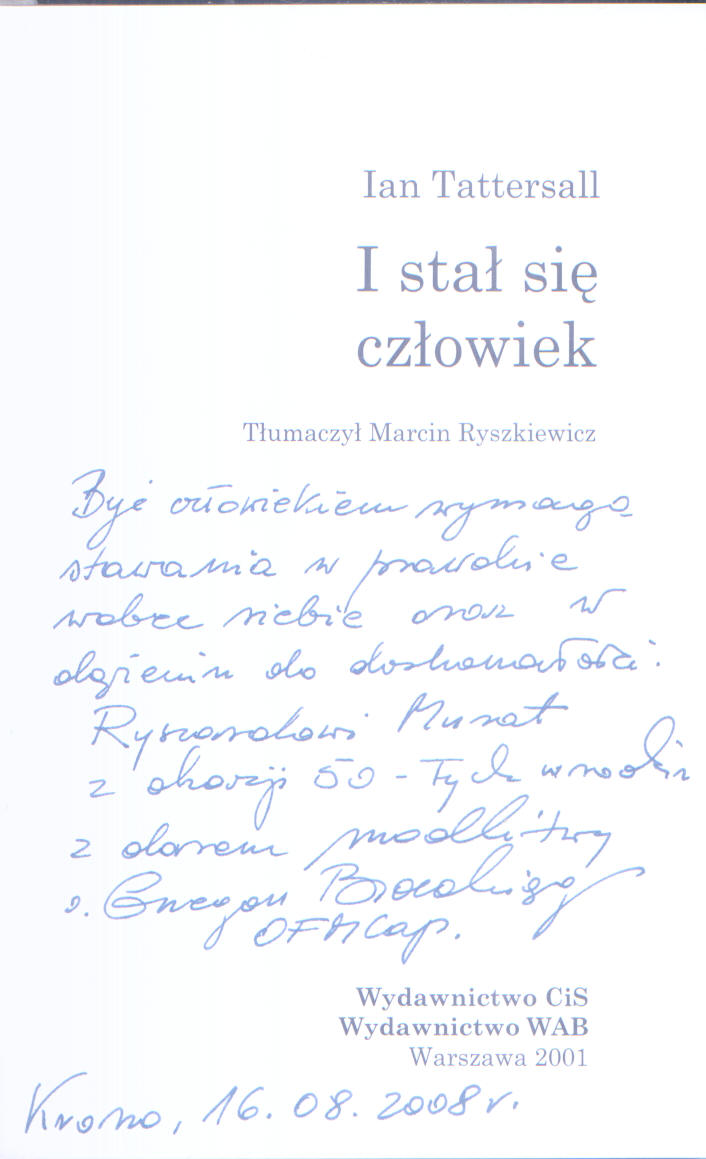 Ian Tattersall
I stał się
człowiek
Tłumaczył Marcin Ryszkiewicz
Być człowiekiem wymaga
stawania w prawdzie
wobec siebie oraz w
dążeniu do doskonałości.
Ryszardowi Munat
z okazji 50-Tych urodzin
z darem modlitwy
o. Grzegorz
OFMCap.
Wydawnictwo CiS
Wydawnictwo WAB
Warszawa 2001
Krosno, 16.08.2008 r.